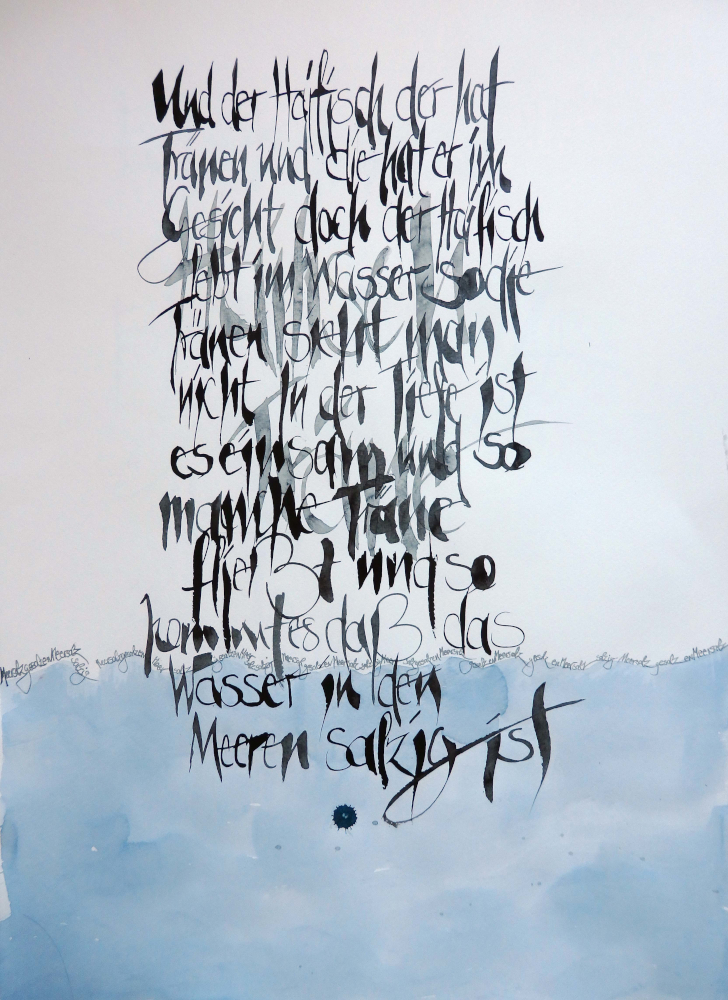 Und der Haifisch der hat
Tränen und die hat er im
Gesicht doch der Haifisch
lebt im Wasser so die
Tränen sieht man
nicht In der Tiefe ist
es einsam und so
manche Träne
fließt und so
kommt es daß das
Wasser in den
Meeren salzig ist